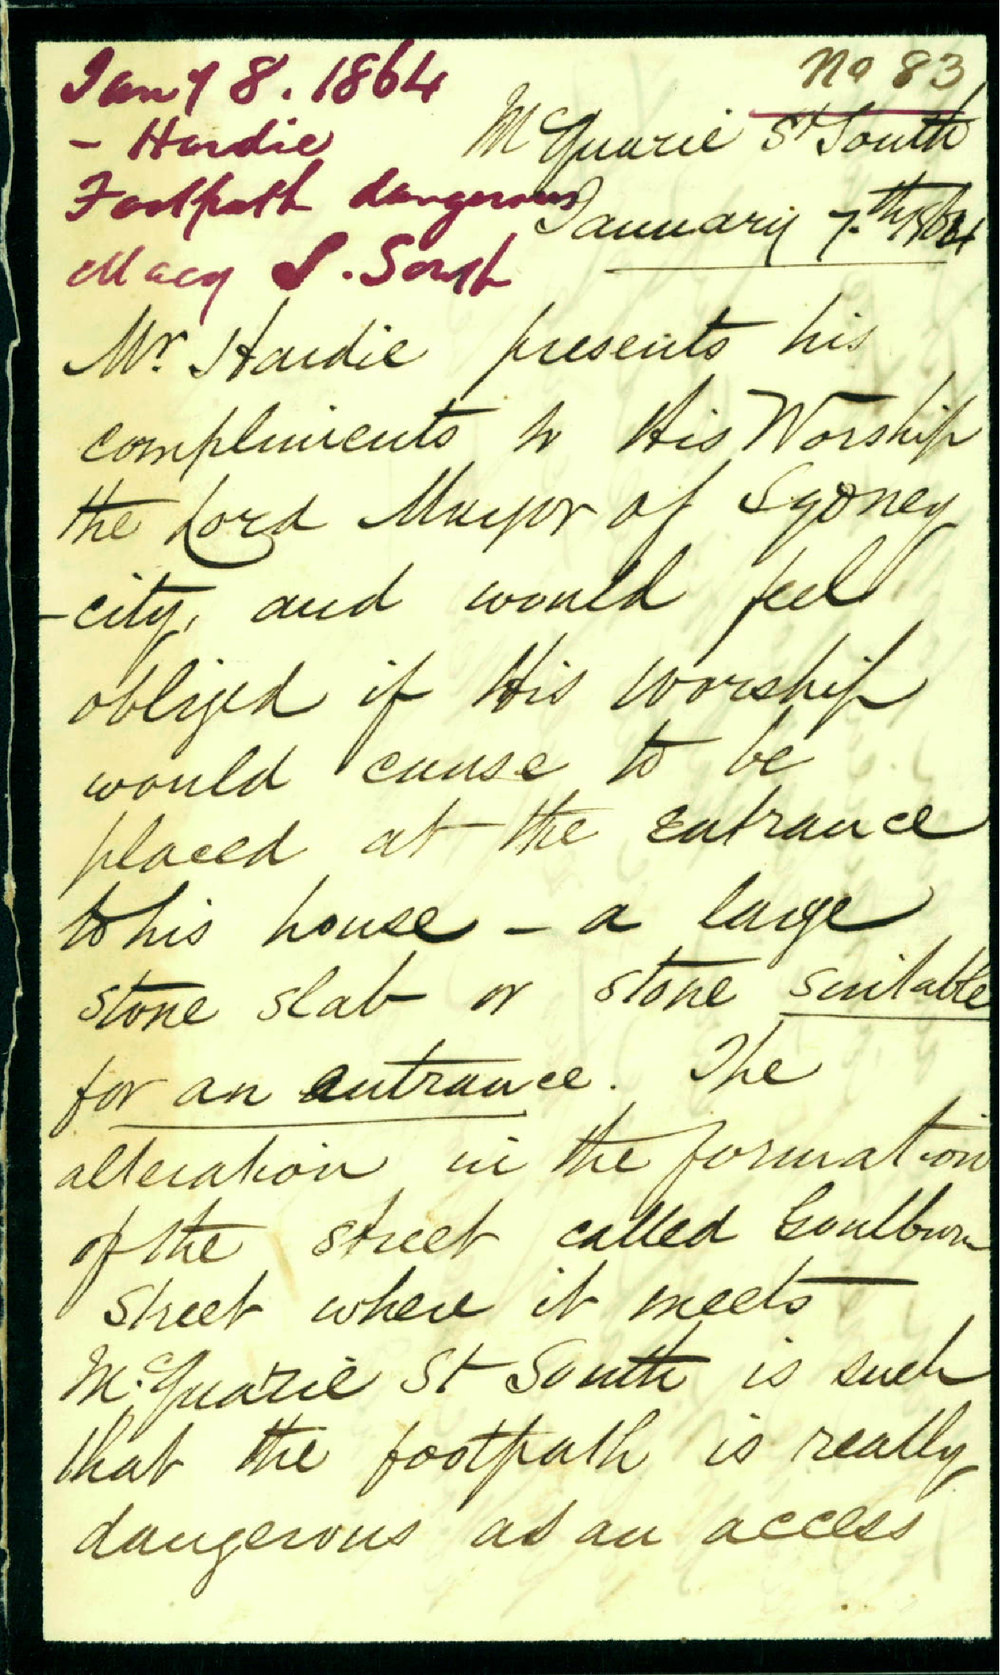 No 83
Jany 8. 1864
- Hardie
Footpath dangerous
Macq S. South
McQuarie St South
January 7th 1864
Mr. Hardie presents his
compliments to His Worship
the Lord Mayor of Sydney
-city, and would feel
obliged if His Worship
would cause to be
placed at the entrance
to his house - a large
stone slab or stone suitable
for an entrance. The
alteration in the formation
of the street called Goulburn
Street where it meets
McQuarie St South is such
that the footpath is really
dangerous as an access